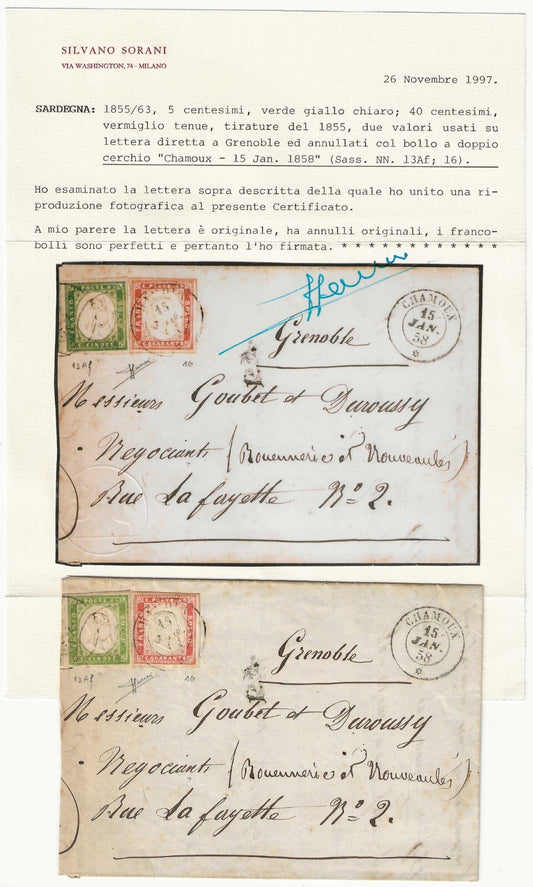 SILVANO SORANI
VIA WASHINGTON, 74 - MILANO
26 Novembre 1997.
SARDEGNA: 1855/63, 5 centesimi, verde giallo chiaro; 40 centesimi,
vermiglio tenue, tirature del 1855, due valori usati su
lettera diretta a Grenoble ed annullati col bollo a doppio
cerchio "Chamoux - 15 Jan. 1858" (Sass. NN. 13Af; 16).
Ho esaminato la lettera sopra descritta della quale ho unito una ri-
produzione fotografica al presente Certificato.
A mio parere la lettera è originale, ha annulli originali, i franco-
bolli sono perfetti e pertanto l'ho firmata. * * * * * * * * * * * *
CHAMOUX
15
JAN.
58
Grenoble
16
Messieurs Goubet et Duroussy
Negociants (Rouennerie et Nouveautés)
Rue Lafayette No 2.
CHAMOUX
15
JAN.
58
Grenoble
16
Messieurs Goubet et Duroussy
Negociants (Rouennerie et Nouveautés)
Rue Lafayette No 2.